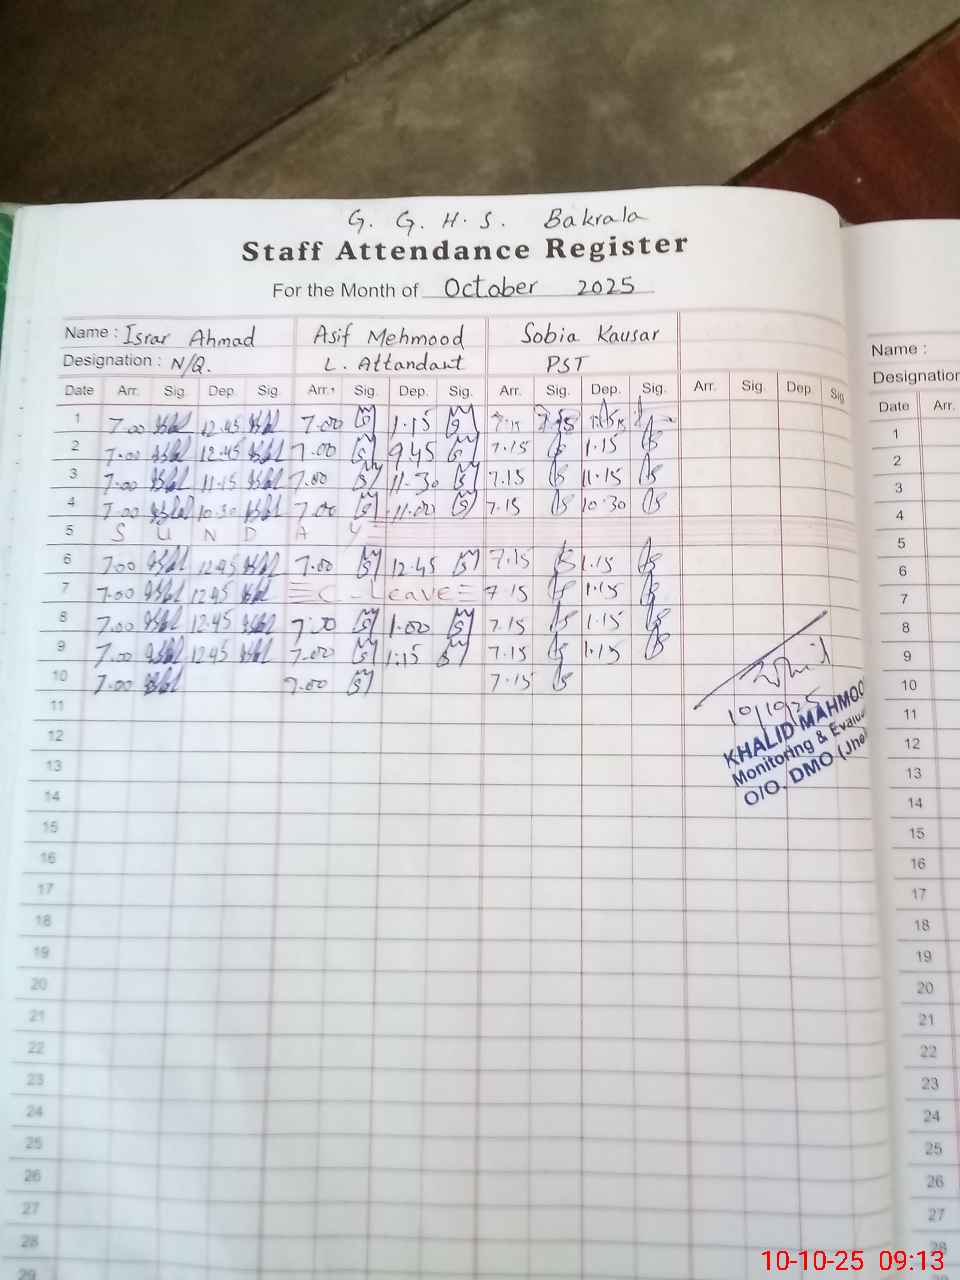 G. G. H. S. Bakrala
Staff Attendance Register
For the Month of October 2025
Name : Israr Ahmad Asif Mehmood Sobia Kausar
Designation : N/Q. L. Attandant PST
Date Arr. Sig. Dep. Sig. Arr. Sig. Dep. Sig. Arr. Sig. Dep. Sig. Arr. Sig. Dep. Sig.
1 7.00 12.45 7.00 1.15 7.15
2 7.00 12.45 7.00 9.45 7.15 1.15
3 7.00 11.15 7.00 11.30 7.15 11.15
4 7.00 10.30 7.00 11.00 7.15 10.30
5 S U N D A Y
6 7.00 12.45 7.00 12.45 7.15 1.15
7 7.00 12.45 C - Leave 7.15 1.15
8 7.00 12.45 7.00 1.00 7.15 1.15
9 7.00 12.45 7.00 1.15 7.15 1.15
10 7.00 7.00 7.15
11
12
13
14
15
16
17
18
19
20
21
22
23
24
25
26
27
28
29
10/10/25
KHALID MAHMOO
Monitoring & Evalu
O/O. DMO (Jhe
Name :
Designation
Date Arr.
1
2
3
4
5
6
7
8
9
10
11
12
13
14
15
16
17
18
19
20
21
22
23
24
25
26
27
28
10-10-25 09:13